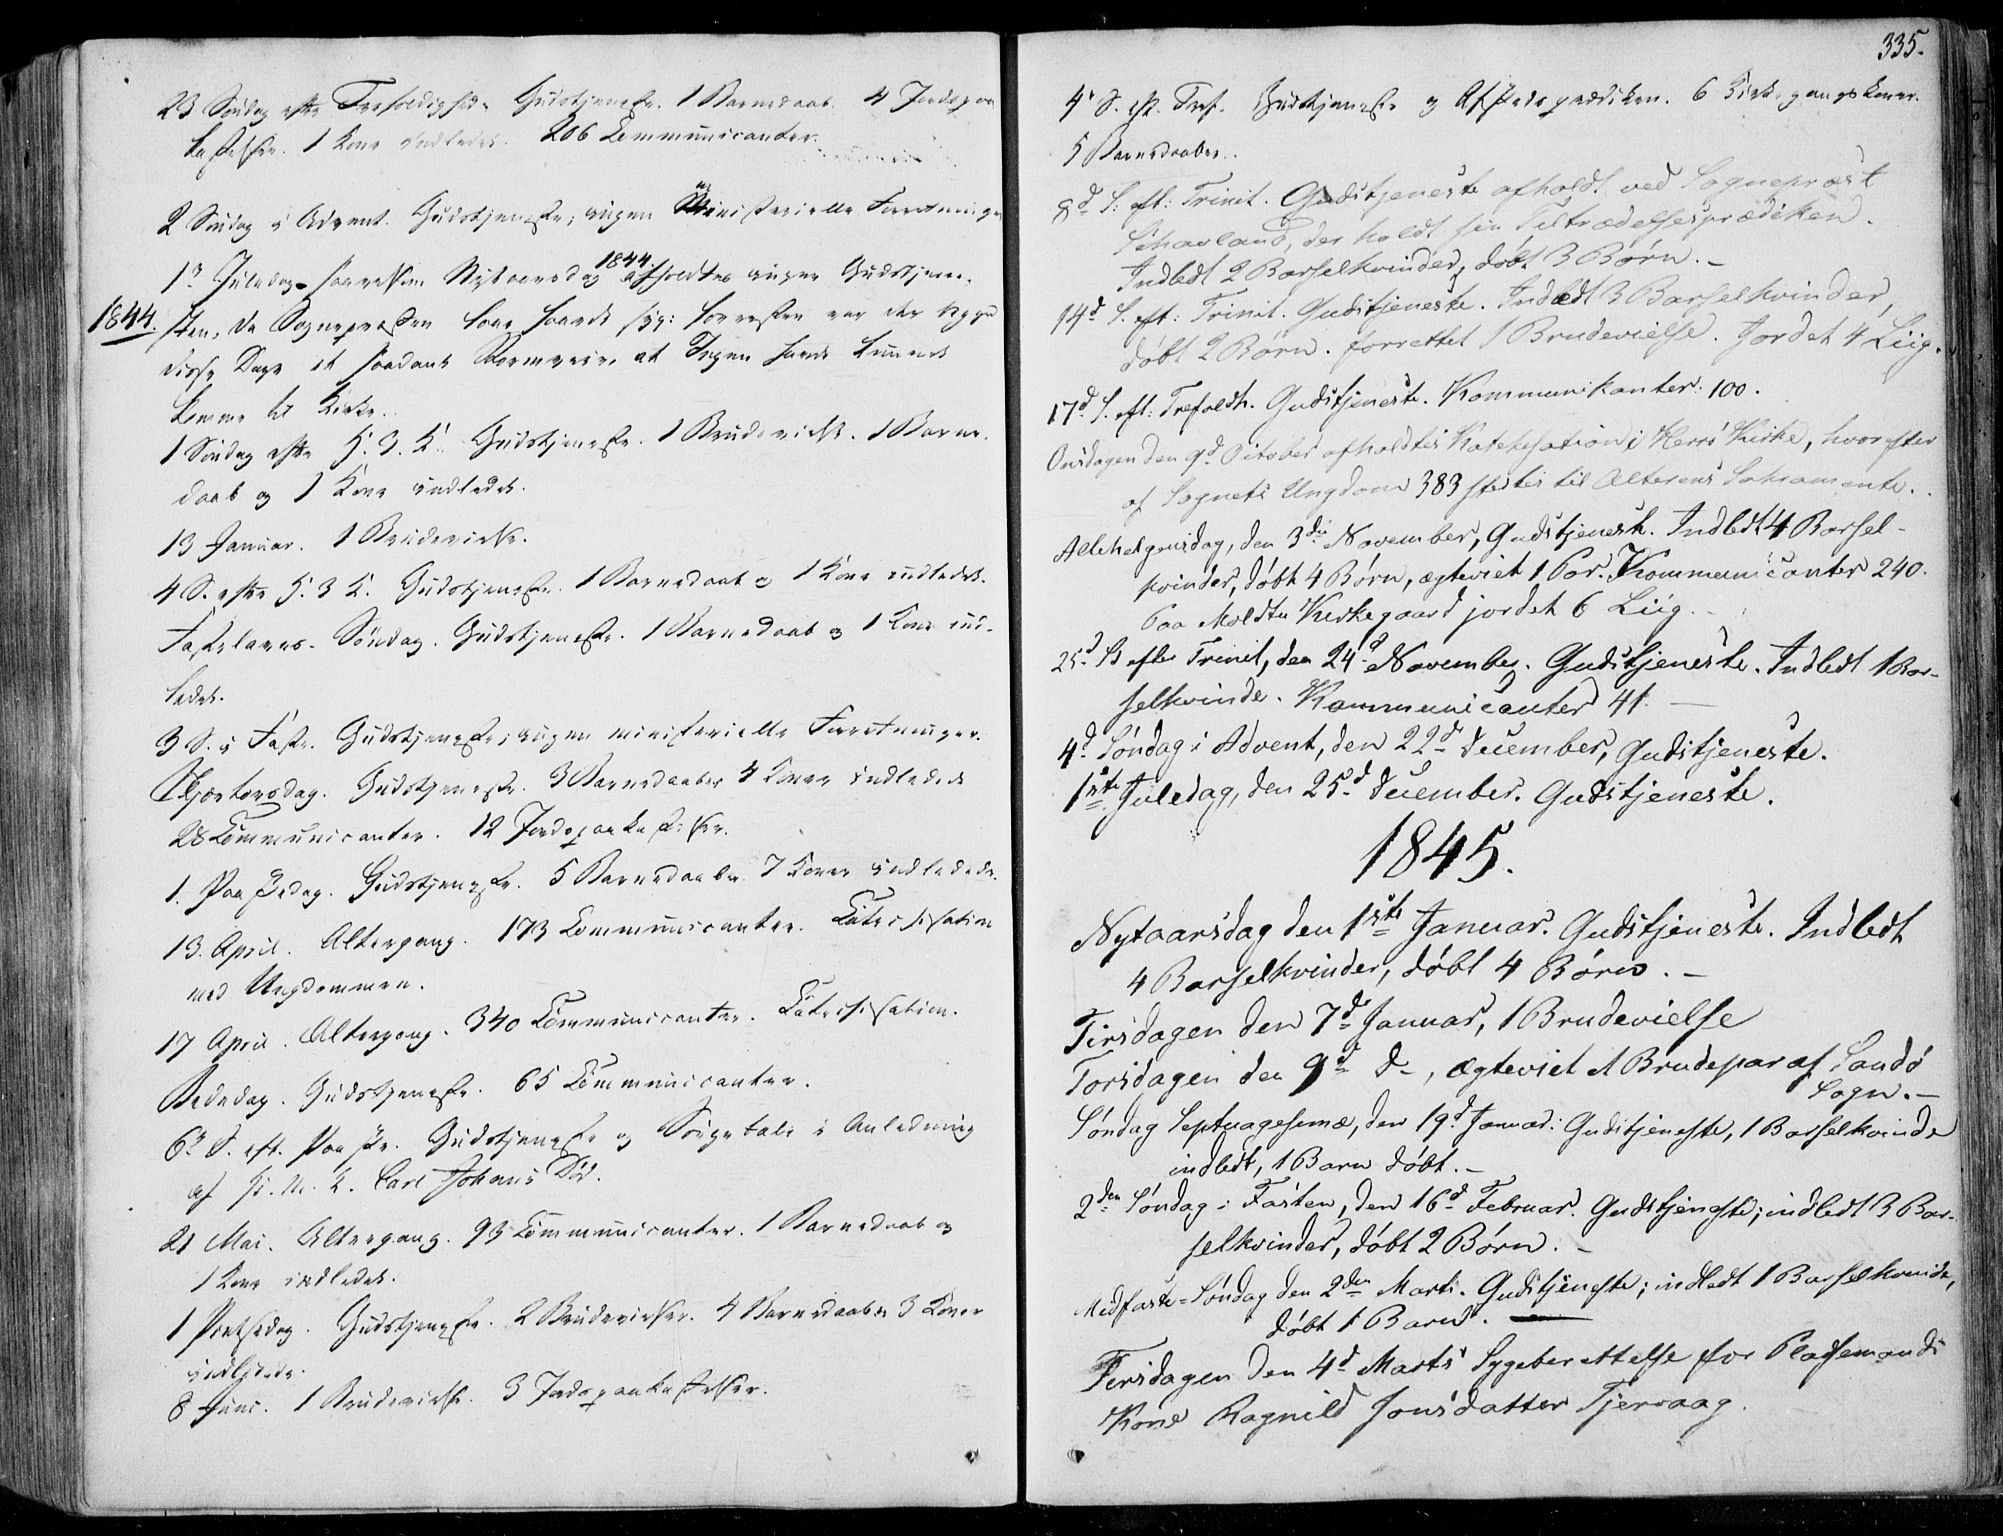 23 Søndag efter Trefoldighed. Gudstjeneste. 1 Barnedaab. 4 Jordspaa
kastelser. 1 Kone indledet. 206 Communicanter.
2 Søndag i Advent. Gudstjeneste, ingen Ministerielle Forretninger
1ste Juledag saavelsom Nytaarsdag 1844 afholdtes ingen Gudstjene-
1844. sten, da Sognepræsten laae haardt syg: forresten var der ogsaa
disse Dage et saadant Stormveir, at Ingen havde kunnet
komme til Kirke.
1 Søndag efter H. 3. K. Gudstjeneste. 1 Brudevielse. 1 Barne-
daab og 1 Kone indledet.
13 Januar. 1 Brudevielse.
4 S. efter H. 3 K. Gudstjeneste. 1 Barnedaab og 1 Kone indledet.
Fastelavns-Søndag. Gudstjeneste. 1 Barnedaab og 1 Kone ind-
ledet.
3 S. i Faste. Gudstjeneste, ingen ministerielle Forretninger.
Skjertorsdag. Gudstjeneste. 3 Barnedaaber 4 Koner indledede
28 Communicanter. 12 Jordspaakastelser.
1. Paaskedag. Gudstjeneste. 5 Barnedaaber 7 Koner indledede.
13. April. Altergang. 173 Communicanter. Catechisation
med Ungdommen.
17 April. Altergang. 340 Communicanter. Catechisation.
Bededag. Gudstjeneste. 65 Communicanter.
6te S. eft. Paaske. Gudstjeneste og Sørgetale i Anledning
af H. M. K. Carl Johans Død.
21 Mai. Altergang. 93 Communicanter. 1 Barnedaab og
1 Kone indledet.
1 Pintsedag. Gudstjeneste. 2 Brudevielser. 4 Barnedaaber 3 Koner
indledede.
8 Juni. 1 Brudevielse. 3 Jordspaakastelser.
335.
4de S. eft. Tref. Gudstjeneste og Afskedsprædiken. 6 Kirkegangskoner.
5 Barnedaaber.
8d S: eft: Trinit. Gudstjeneste afholdt ved Sognepræst
Schavland, der holdt sin Tiltrædelsesprædiken.
Indledt 2 Barselkvinder, døbt 3 Børn. -
14d S. eft: Trinit. Gudstjeneste. Indledt 3 Barselkvinder,
døbt 2 Børn. forrettet 1 Brudevielse. Jordet 4 Liig.
17d S. eft: Trefoldh. Gudstjeneste. Kommunikanter: 100.
Onsdagen den 9d October afholdtes Katekesation i Herrø Kirke, hvorefter
af Sognets Ungdom 383 stedtes til Alterens Sakramente.
Allehelgensdag, den 3die November, Gudstjeneste. Indledt 4 Barsel-
kvinder, døbt 4 Børn, ægteviet 1 Par. Kommunicanter 240.
Paa Moldtu Kirkegaard jordet 6 Liig. -
25d S efter Trinit, den 24d November. Gudstjeneste. Indledt 1 Bar-
selkvinde. Kommunicanter 41. -
4d Søndag i Advent, den 22d December, Gudstjeneste.
1ste Juledag, den 25d December. Gudstjeneste.
1845.
Nytaarsdag den 1ste Januar. Gudstjeneste. Indledt
4 Barselkvinder, døbt 4 Børn. -
Tirsdagen den 7de Januar, 1 Brudevielse
Torsdagen den 9d d-, ægteviet et Brudepar af Sandø
Sogn. -
Søndag Septuagesemæ, den 19d Januar: Gudstjeneste, 1 Barselkvinde
indledt, 1 Barn døbt. -
2den Søndag i Fasten, den 16d Februar. Gudstjeneste; indledt 3 Bar-
selkvinder, døbt 2 Børn. -
Medfaste-Søndag den 2den Marts. Gudstjeneste; indledt 1 Barselkvinde,
døbt 1 Barn. -
Tirsdagen den 4d Marts Sygeberettelse for Pladsemands
Kone Ragnild Jonsdatter Tjervaag.